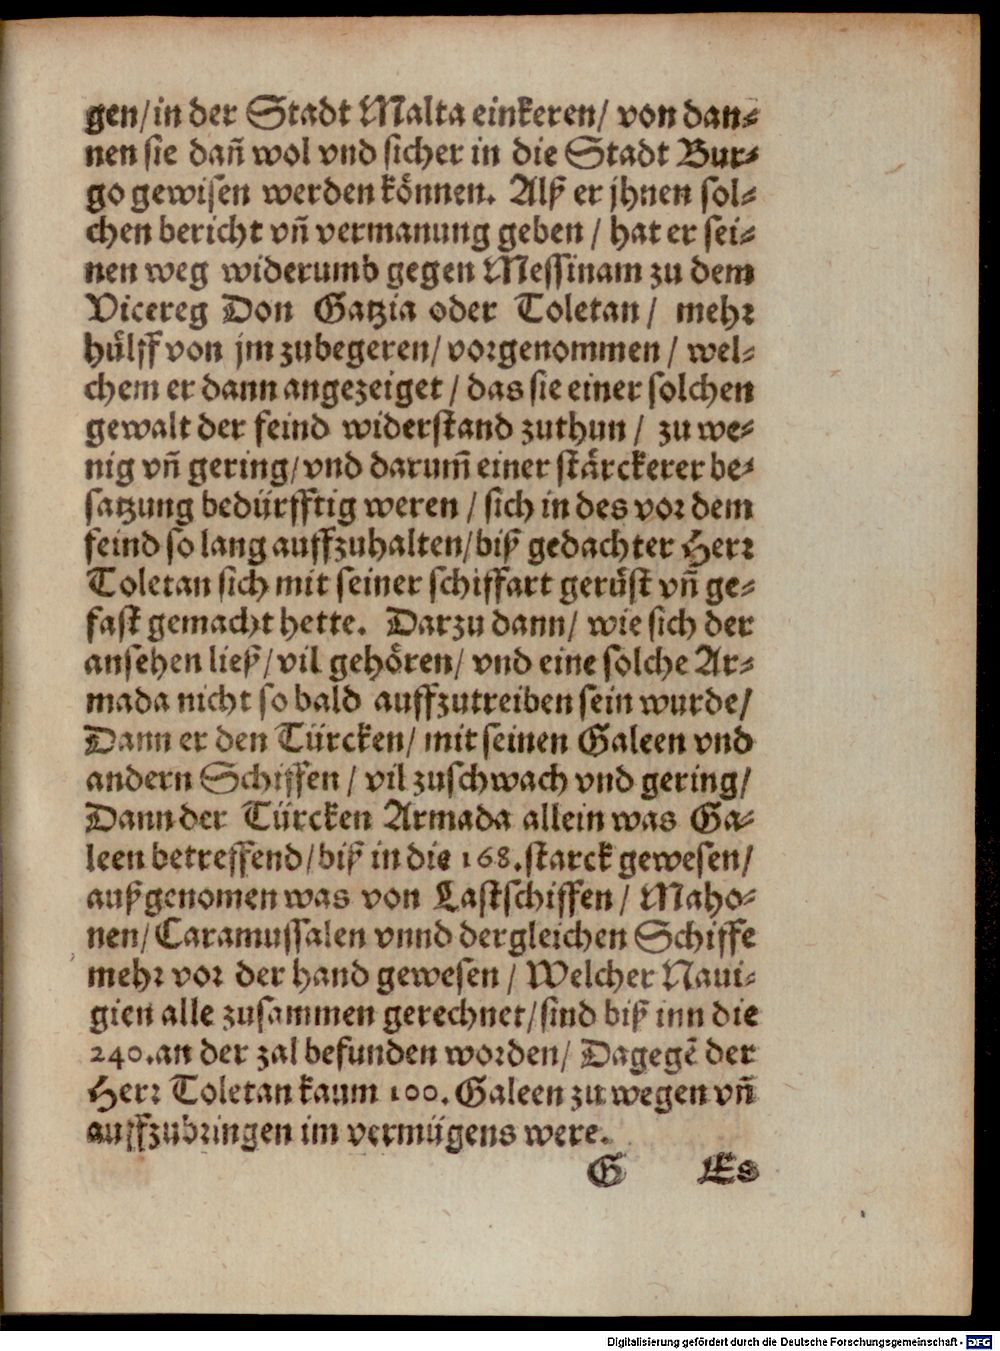 gen/in der Stadt Malta einkeren/ von dan⸗
nen sie dañ wol vnd sicher in die Stadt Bur⸗
go gewisen werden können. Alß er jhnen sol⸗
chen bericht vñ vermanung geben / hat er sei⸗
nen weg widerumb gegen Messinam zu dem
Vicereg Don Gatzia oder Toletan / mehr
hülff von jm zubegeren/ vorgenommen / wel⸗
chem er dann angezeiget / das sie einer solchen
gewalt der feind widerstand zuthun / zu we⸗
nig vñ gering/vnd darum̃ einer stärckerer be⸗
satzung bedürfftig weren / sich in des vor dem
feind so lang auffzuhalten/biß gedachter Herr
Toletan sich mit seiner schiffart gerüst vñ ge⸗
fast gemacht hette. Darzu dann/ wie sich der
ansehen ließ/vil gehören/ vnd eine solche Ar⸗
mada nicht so bald auffzutreiben sein wurde/
Dann er den Türcken/ mit seinen Galeen vnd
andern Schiffen / vil zuschwach vnd gering/
Dann der Türcken Armada allein was Ga⸗
leen betreffend/biß in die 168.starck gewesen/
außgenomen was von Lastschiffen / Maho⸗
nen/Caramussalen vnnd dergleichen Schiffe
mehr vor der hand gewesen / Welcher Naui⸗
gien alle zusammen gerechnet/sind biß inn die
240.an der zal befunden worden/ Dagegẽ der
Herr Toletan kaum 100. Galeen zu wegen vñ
auffzubringen im vermügens were.
G Es
Digitalisierung gefördert durch die Deutsche Forschungsgemeinschaft - DFG